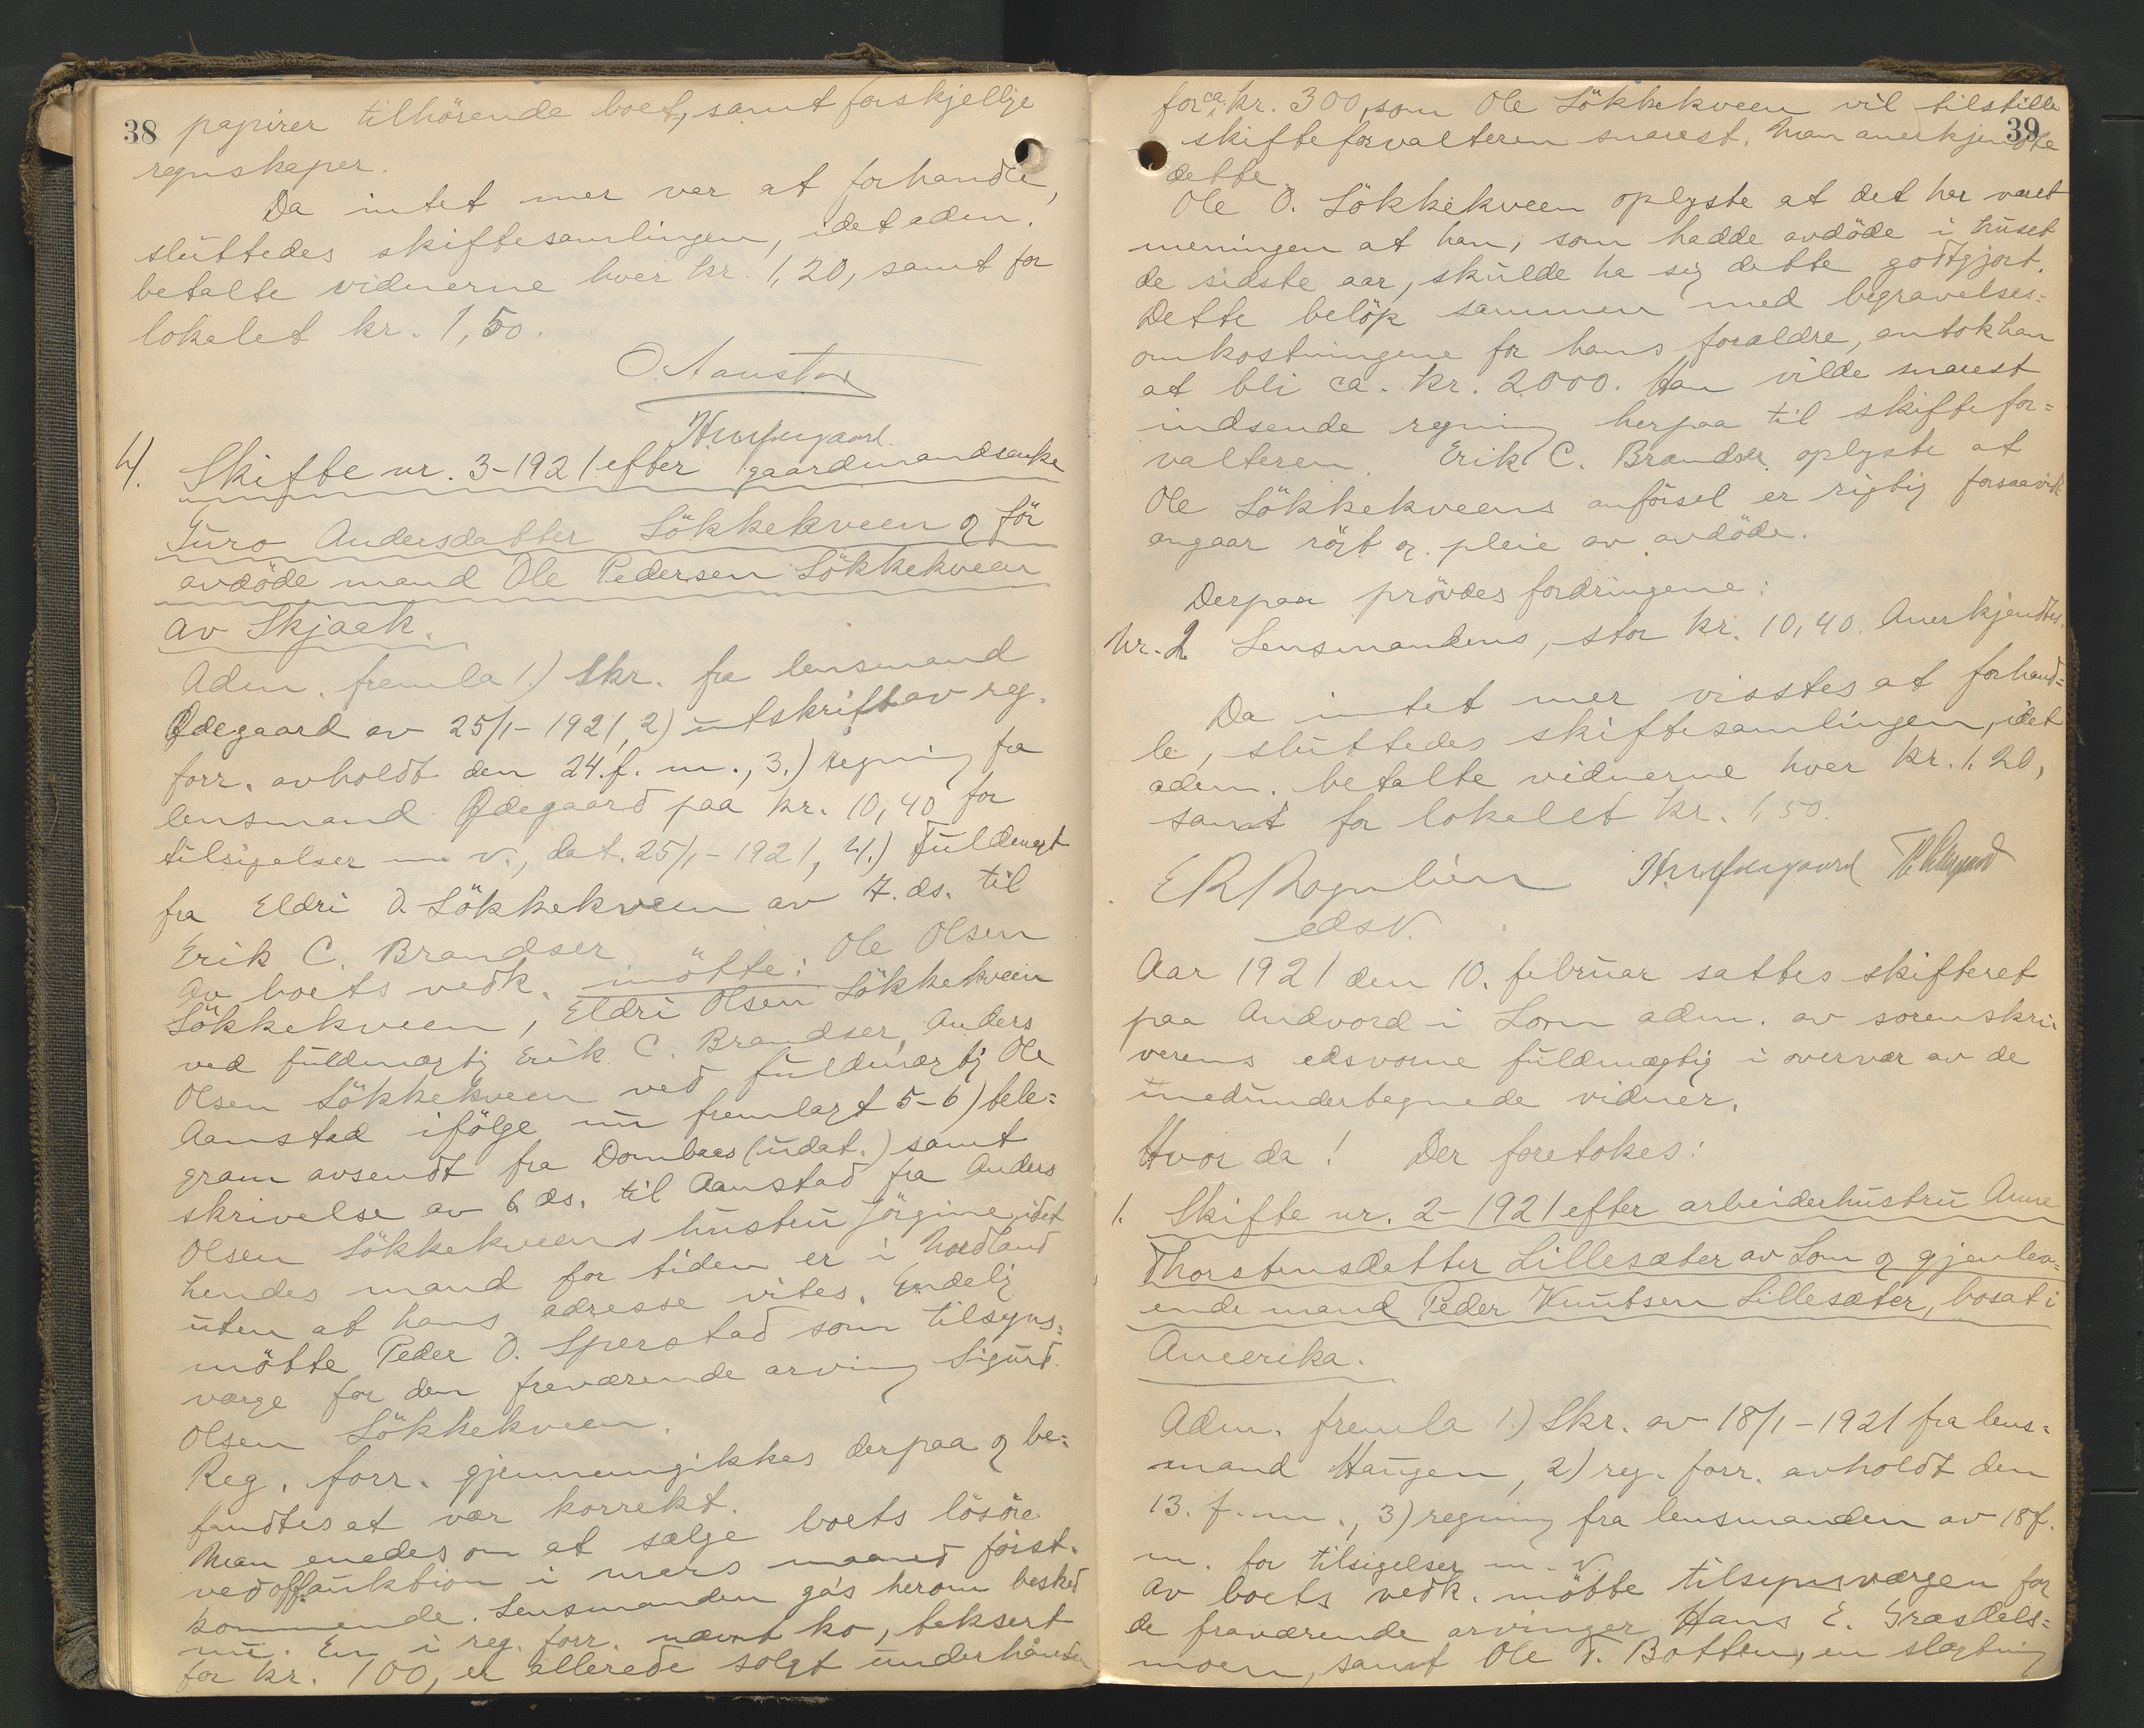 38 papirer tilhörende boet, samt forskjellige
regnskaper.
Da intet mer var at forhandle,
sluttedes skiftesamlingen, idet adm.
betalte vidnerne hver kr. 1,20, samt for
lokalet kr. 1,50.
O. Aanstad
4. Skifte nr. 3-1921 efter gaardmandsenke
Turo Andersdatter Lökkekveen og för
avdöde mand Ole Pedersen Lökkekveen
av Skjaak.
Adm. fremla 1.) Skr. fra lensmand
Ødegaard av 25/1-1921, 2) utskrift av reg.
forr. avholdt den 24. f. m., 3.) regning fra
lensmand Ødegaard paa kr. 10,40 for
tilsigelser m. v., dat. 25/1-1921, 4.) Fuldmagt
fra Eldri O. Lökkekveen av 7. ds. til
Erik C. Brandser
Av boets vedk. mötte: Ole Olsen
Lökkekveen, Eldri Olsen Lökkekveen
ved fuldmægtig Erik C. Brandser, Anders
Olsen Lökkekveen ved fuldmægtig Ole
Aanstad ifölge nu fremlagt 5-6) tele=
gram avsendt fra Dombaas (udat.) samt
skrivelse av 6. ds. til Aanstad fra Anders
Olsen Lökkekveens hustru Jörgine, idet
hendes mand for tiden er i Nordland
uten at hans adresse vites. Endelig
mötte Peder O. Sperstad som tilsyns=
værge for den fraværende arving Sigurd
Olsen Lökkekveen.
Reg. forr. gjennemgikkes derpaa og be=
fandtes at vær korrekt.
Man enedes om at sælge boets lösöre
ved off. auktion i mars maaned först.
kommende. Lensmanden ga's herom besked
nu. En i reg. forr. nævnt ko, taksert
for kr. 100, er allerede solgt underhånden
39
for ca. kr. 300, som Ole Lökkekveen vil tilstille
skifteforvalteren snarest. Man anerkjendte
dette.
Ole O. Lökkekveen oplyste at det har været
meningen at han, som hadde avdöde i huset
de sidste aar, skulde ha sig dette godtgjort.
Dette belöp sammen med begravelses=
omkostningene for hans forældre, antok han
at bli ca. kr. 2000. Han vilde snarest
indsende regning herpaa til skiftefor=
valteren. Erik C. Brandser oplyste at
Ole Lökkekveens anförsel er rigtig forsaavidt
angaar rögt og pleie av avdöde.
Derpaa prövdes fordringene:
Nr. 1 Lensmandens, stor kr. 10,40. Anerkjendtes.
Da intet mer visstes at forhand=
le, sluttedes skiftesamlingen, idet
adm. betalte vidnerne hver kr. 1,20,
samt for lokalet kr. 1,50.
edsv.
Aar 1921 den 10. februar sattes skifteret
paa Andvord i Lom adm. av sorenskri=
verens edsvorne fuldmægtig i overvær av de
medundertegnede vidner.
Hvor da! Der foretokes:
1. Skifte nr. 2-1921 efter arbeiderhustru Anne
Thorstensdatter Lillesæter av Lom og gjenlev=
ende mand Peder Knutsen Lillesæter, bosat i
Amerika.
Adm. fremla 1.) Skr. av 18/1-1921 fra lens=
mand Haugen, 2) reg. forr. avholdt den
13. f. m., 3) regning fra lensmanden av 18 f.
m. for tilsigelser m. v.
Av boets vedk. mötte tilsynsværgen for
de fraværende arvinger Hans E. Græsdals=
moen, samt Ole T. Botten, en slægtning